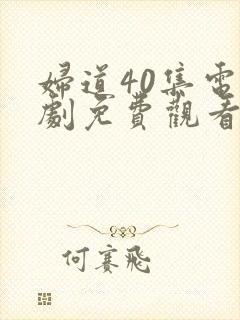 婦道40集電
劇免費觀看
何賽飛